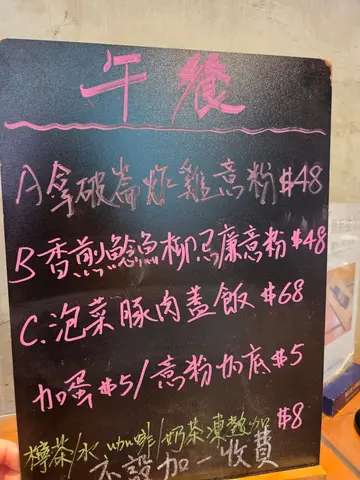 午餐
A拿破崙炸雞意粉$48
B香煎鯰魚柳忌廉意粉$48
C.泡菜豚肉蓋飯$68
加蛋$5/意粉加底$5
檸茶/水、咖啡/奶茶凍飲加$8
不設加一收費